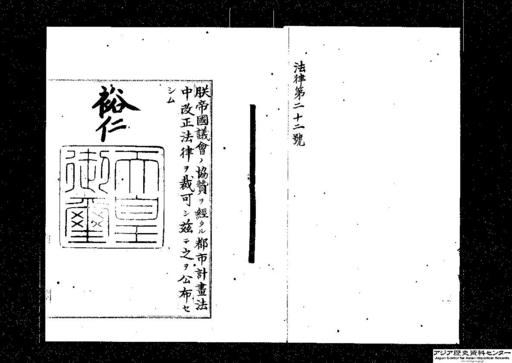 法律第二十二號
朕帝國議會ノ協贊ヲ經タル都市計畫法
中改正法律ヲ裁可シ茲ニ之ヲ公布セ
シム
裕仁
天皇
御璽
アジア歴史資料センター
Japan Center for Asian Historical Records